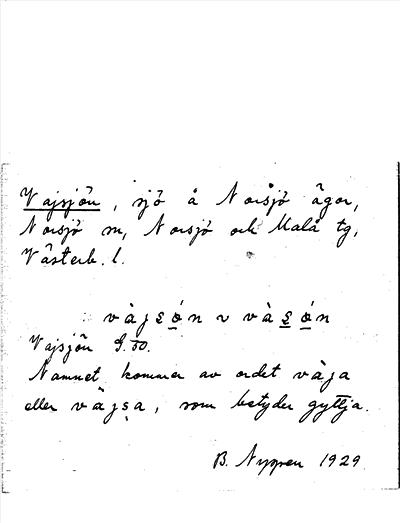 Vajsjön, sjö å Norsjö ägor,
Norsjö sn, Norsjö och Malå tg,
Västerb. l.
vàjsó̲n ~ vàs̲ó̲n
Vajsjön G.50.
Namnet kommer av ordet vàja
eller vàjsa, som betyder gyttja.
B. Nygren 1929